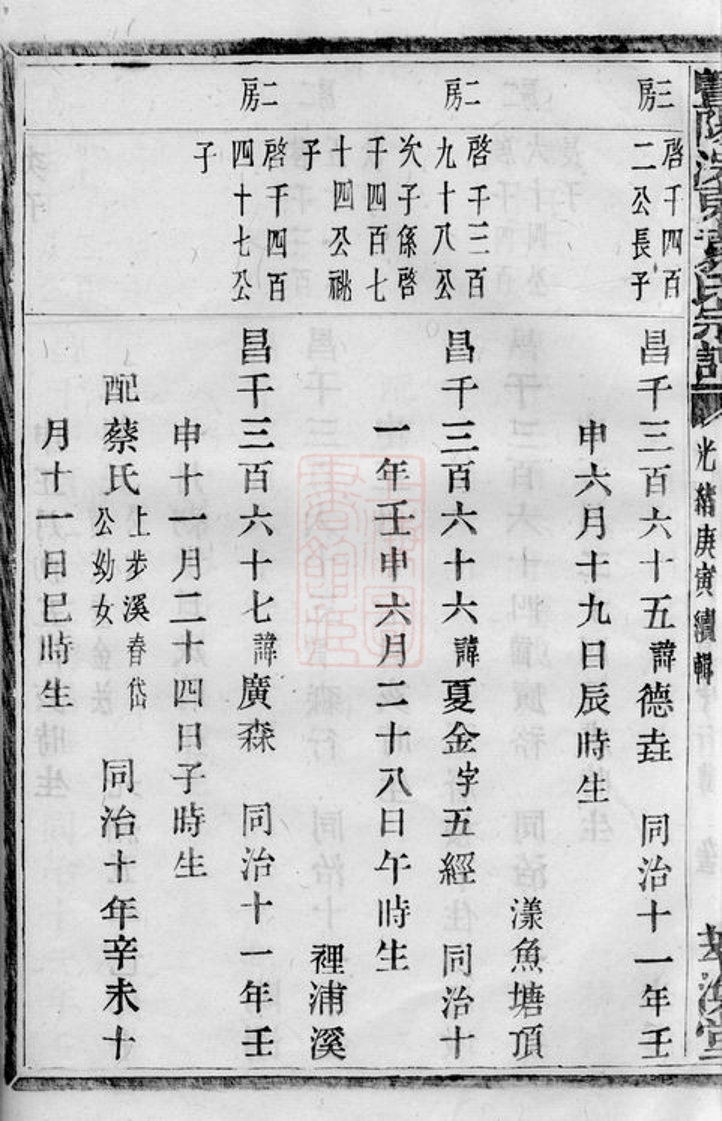 光緒庚寅續輯
三房
啓千四百
二公長子
昌千三百六十五諱德垚 同治十一年壬
申六月十九日辰時生
漾魚塘頂
二房
啓千三百
九十八公
次子係啓
千四百七
十四公祧
子
昌千三百六十六諱夏金字五經 同治十
一年壬申六月二十八日午時生
裡浦溪
二房
啓千四百
四十七公
子
昌千三百六十七諱廣森 同治十一年壬
申十一月二十四日子時生
配蔡氏上步溪春岱公幼女 同治十年辛未十
月十一日巳時生